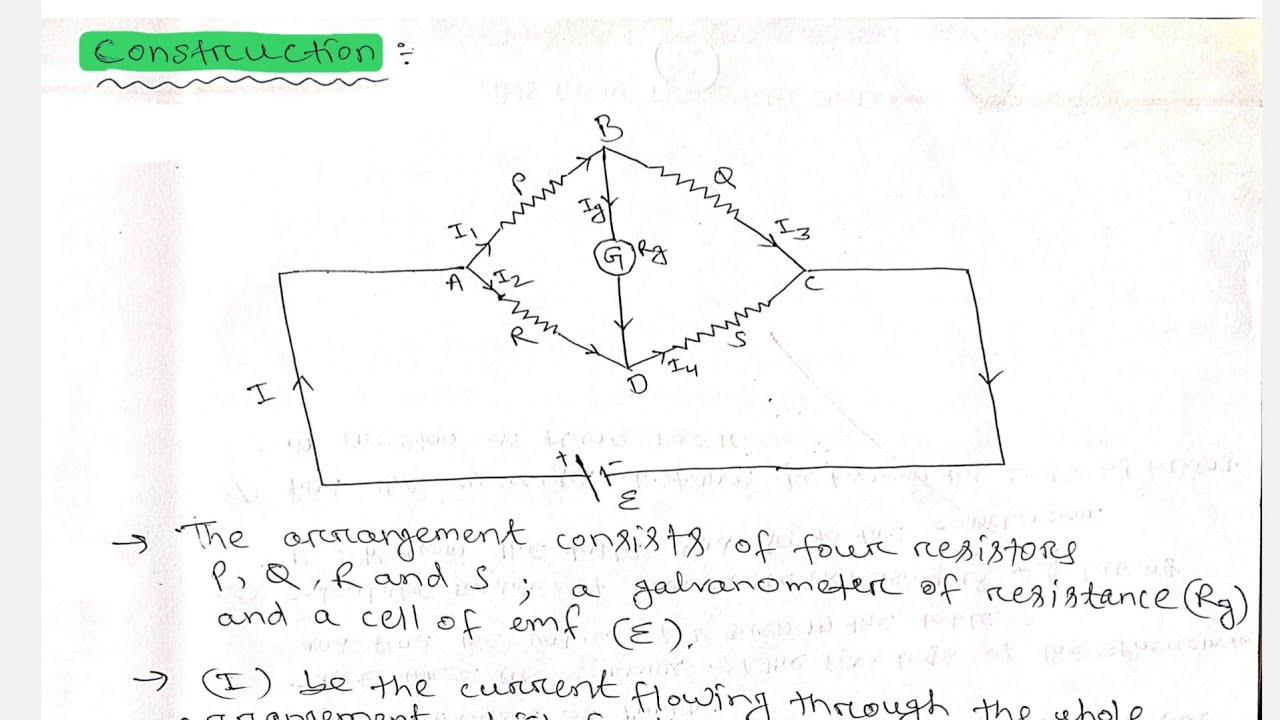 Construction :
B
P
Q
Ig
I1
I3
G
Rg
A
I2
C
R
S
I4
D
I
+
-
E
→ The arrangement consists of four resistors
P, Q, R and S ; a galvanometer of resistance (Rg)
and a cell of emf (E).
→ (I) be the current flowing through the whole
arrangement